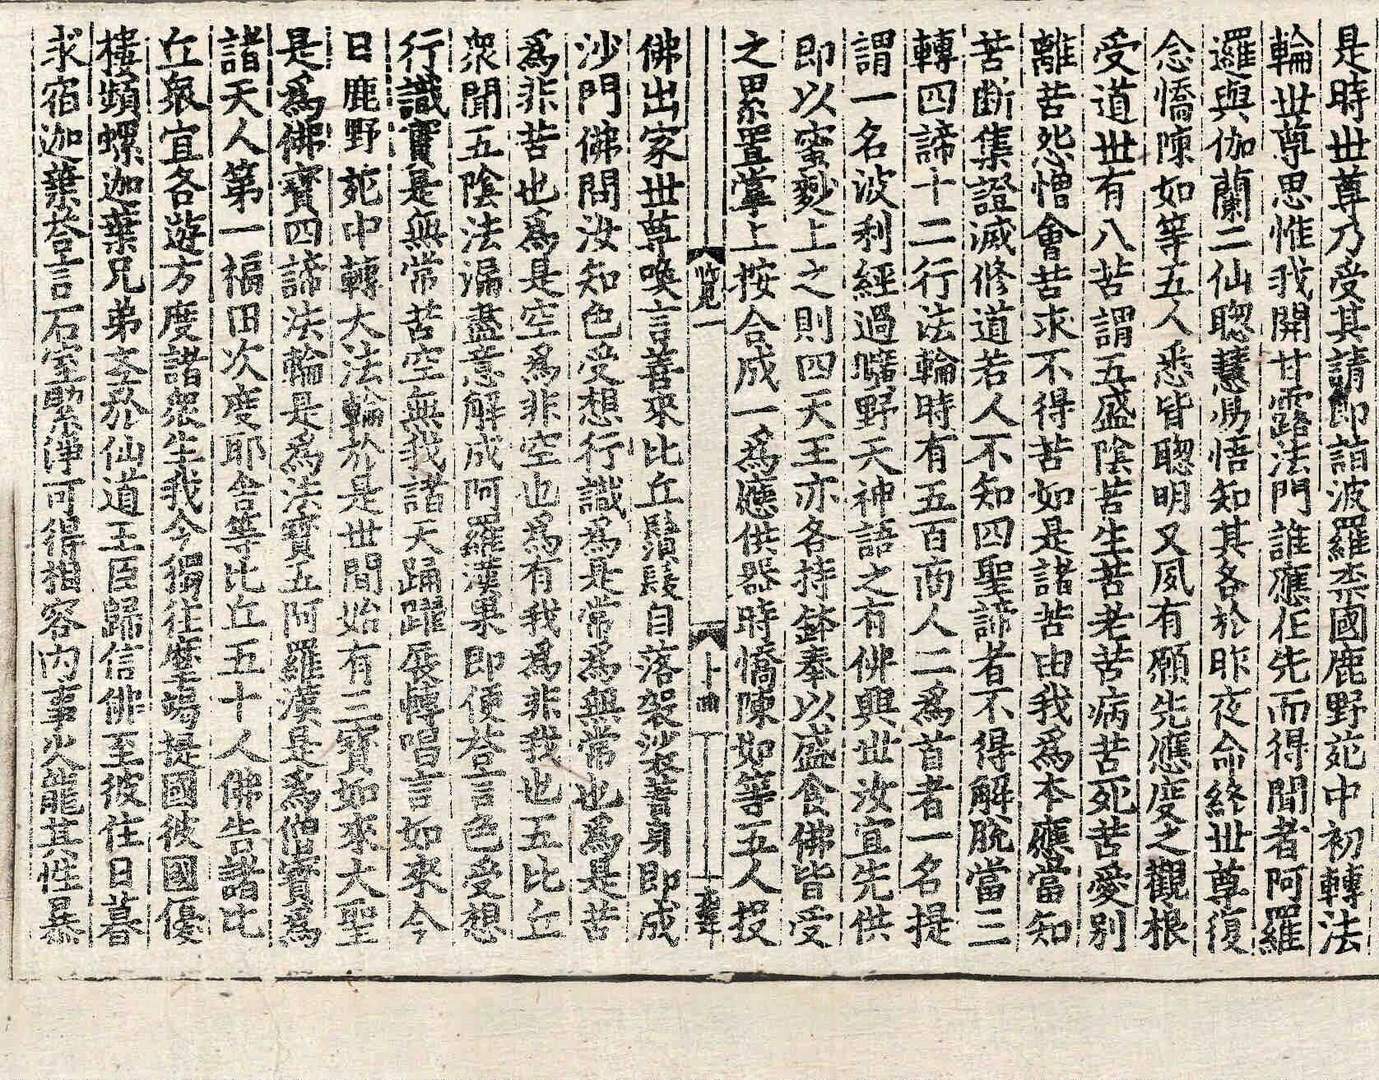 是時世尊乃受其請即詣波羅柰國鹿野苑中初轉法
輪世尊思惟我開甘露法門誰應在先而得聞者阿羅
邏與伽蘭二仙聰慧易悟知其各於昨夜命終世尊復
念憍陳如等五人悉皆聰明又夙有願先應度之觀根
受道世有八苦謂五盛陰苦生苦老苦病苦死苦愛別
離苦怨憎會苦求不得苦如是諸苦由我為本應當知
苦斷集證滅修道若人不知四聖諦者不得解脫當三
轉四諦十二行法輪時有五百商人二為首者一名提
謂一名波利經過曠野天神語之有佛興世汝宜先供
即以蜜麨上之則四天王亦各持鉢奉以盛食佛皆受
之累置掌上按合成一為應供器時憍陳如等五人投
覧一
佛出家世尊喚言善來比丘鬚髮自落袈裟着身即成
沙門佛問汝知色受想行識為是常為無常也為是苦
為非苦也為是空為非空也為有我為非我也五比丘
衆聞五陰法漏盡意解成阿羅漢果即便荅言色受想
行識實是無常苦空無我諸天踊躍展轉唱言如來今
日鹿野苑中轉大法輪於是世間始有三寶如來大聖
是為佛寶四諦法輪是為法寶五阿羅漢是為僧寶為
諸天人第一福田次度耶舍等比丘五十人佛告諸比
丘衆宜各遊方度諸衆生我今獨往摩竭提國彼國優
樓頻螺迦葉兄弟三於仙道王臣歸信佛至彼住日暮
求宿迦葉荅言石室緊淨可得相容內事火龍其性暴